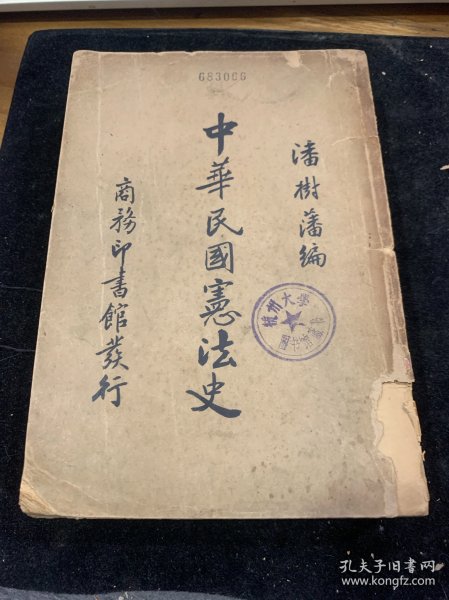 683066
潘樹藩編
中華民國憲法史
商務印書館發行
杭州大學
孔夫子旧书网
www.kongfz.com